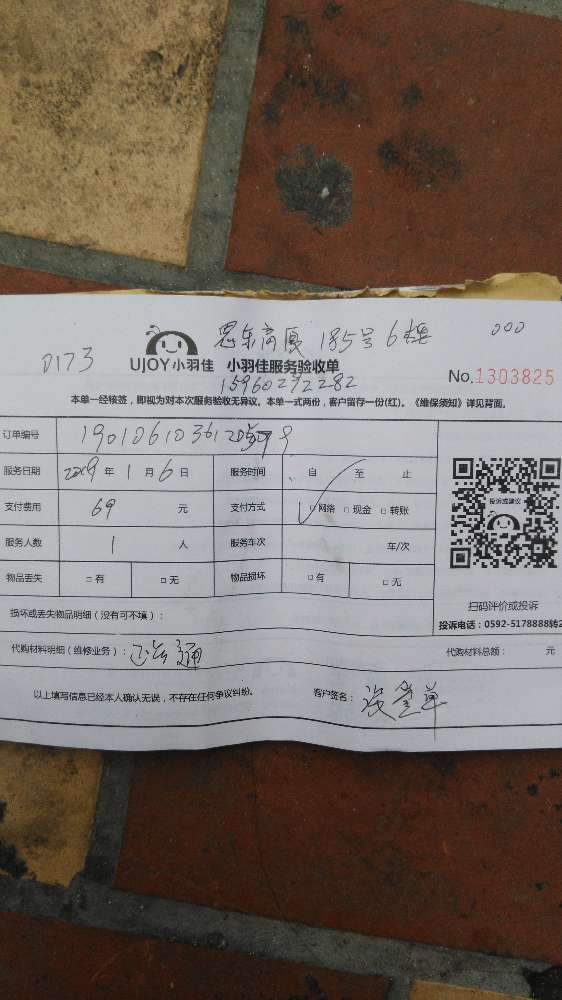 185号6楼 000
0173
UJOY小羽佳 小羽佳服务验收单
15960292282
No.1303825
本单一经核签，即视为对本次服务验收无异议。本单一式两份，客户留存一份(红)。《维保须知》详见背面。
订单编号
服务日期 2019 年 1 月 6 日 服务时间 自 至 止
支付费用 69 元 支付方式 □网络 □现金 □转账
服务人数 1 人 服务车次 车/次
物品丢失 □有 □无 物品损坏 □有 □无
投诉或建议
扫码评价或投诉
投诉电话：0592-5178888转2
损坏或丢失物品明细（没有可不填）：
代购材料明细（维修业务）： 通 代购材料总额： 元
以上填写信息已经本人确认无误，不存在任何争议纠纷。 客户签名：